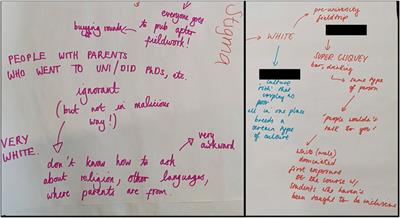 everyone goes
to pub after
fieldwork!
buying rounds
Stigma
PEOPLE WITH PARENTS
WHO WENT TO UNI/DID PhDs, etc.
ignorant
(but not in malicious
way!)
VERY
WHITE.
very
awkward
don't know how to ask
about religion, other languages,
where parents are from.
pre-university
fieldtrip
WHITE
SUPER CLIQUEY
bar drinking
same type
of person
culture
rich that
cosplay as
poor
all in one place
breeds a
certain type
of culture
"people wouldn't
talk to you"
white (male)
dominated
first exposure
to the course w/
students who haven't
been taught to be inclusive